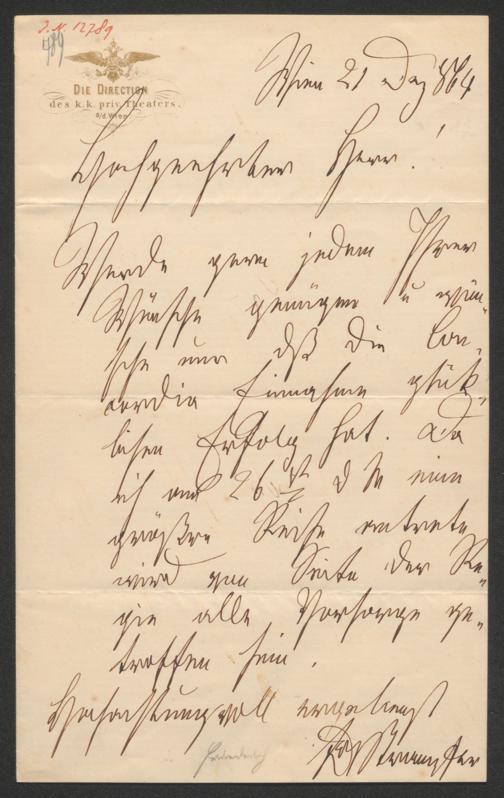 J. N. 12789
789
DIE DIRECTION
des k.k. priv. Theaters.
a/d. Wien
Wien 21 May 864
Hochgeehrter Herr!
Werde gern jedem Ihrer
Wünsche genügen u wün-
sche nur dß die Con-
cordia Einnahme glük-
lichen Erfolg hat. Da
ich am 26 d M eine
größere Reise antrete
wird von Seite der Re-
gie alle Vorsorge ge-
troffen sein.
Hochachtungsvoll ergebenst
Strampfer